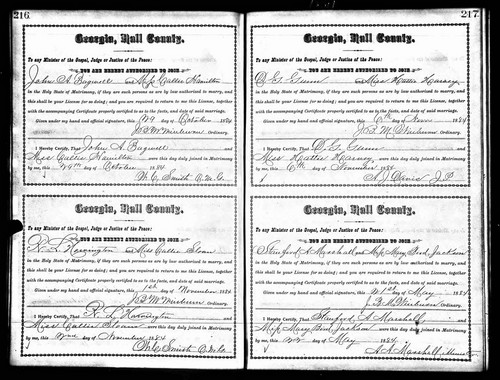 216
Georgia, Hall County.
To any Minister of the Gospel, Judge or Justice of the Peace:
YOU ARE HEREBY AUTHORIZED TO JOIN
John A Bagwell and Miss Callie Hamilton
in the Holy State of Matrimony, if they are such persons as are by law authorized to marry, and
this shall be your License for so doing; and you are required to return to me this License, together
with the accompanying Certificate properly certified to as to the facts, and date of said marriage.
Given under my hand and official signature, this 29 day of October 1884
Ordinary.
I hereby Certify, That John A Bagwell and
Miss Callie Hamilton were this day duly joined in Matrimony
by me, this 29th day of October 1884
W. C. Smith
Georgia, Hall County.
To any Minister of the Gospel, Judge or Justice of the Peace:
YOU ARE HEREBY AUTHORIZED TO JOIN
R. L. and Miss Callie Sloan
in the Holy State of Matrimony, if they are such persons as are by law authorized to marry, and
this shall be your License for so doing; and you are required to return to me this License, together
with the accompanying Certificate properly certified to as to the facts, and date of said marriage.
Given under my hand and official signature, this 1st day of November 1884
Ordinary.
I hereby Certify, That R. L. and
Miss Callie Sloan were this day duly joined in Matrimony
by me, this 2nd day of November 1884
W. C. Smith
217
Georgia, Hall County.
To any Minister of the Gospel, Judge or Justice of the Peace:
YOU ARE HEREBY AUTHORIZED TO JOIN
and Miss Hattie
in the Holy State of Matrimony, if they are such persons as are by law authorized to marry, and
this shall be your License for so doing; and you are required to return to me this License, together
with the accompanying Certificate properly certified to as to the facts, and date of said marriage.
Given under my hand and official signature, this 6th day of Nov 1884
Ordinary.
I hereby Certify, That and
Miss Hattie were this day duly joined in Matrimony
by me, this 6th day of November 1884
A. J. Davis J.P.
Georgia, Hall County.
To any Minister of the Gospel, Judge or Justice of the Peace:
YOU ARE HEREBY AUTHORIZED TO JOIN
Stanford A Marshall and Miss Mary Jackson
in the Holy State of Matrimony, if they are such persons as are by law authorized to marry, and
this shall be your License for so doing; and you are required to return to me this License, together
with the accompanying Certificate properly certified to as to the facts, and date of said marriage.
Given under my hand and official signature, this 21st day of May 1884
Ordinary.
I hereby Certify, That Stanford A Marshall and
Miss Mary Jackson were this day duly joined in Matrimony
by me, this 22 day of May 1884
A. A. Marshall